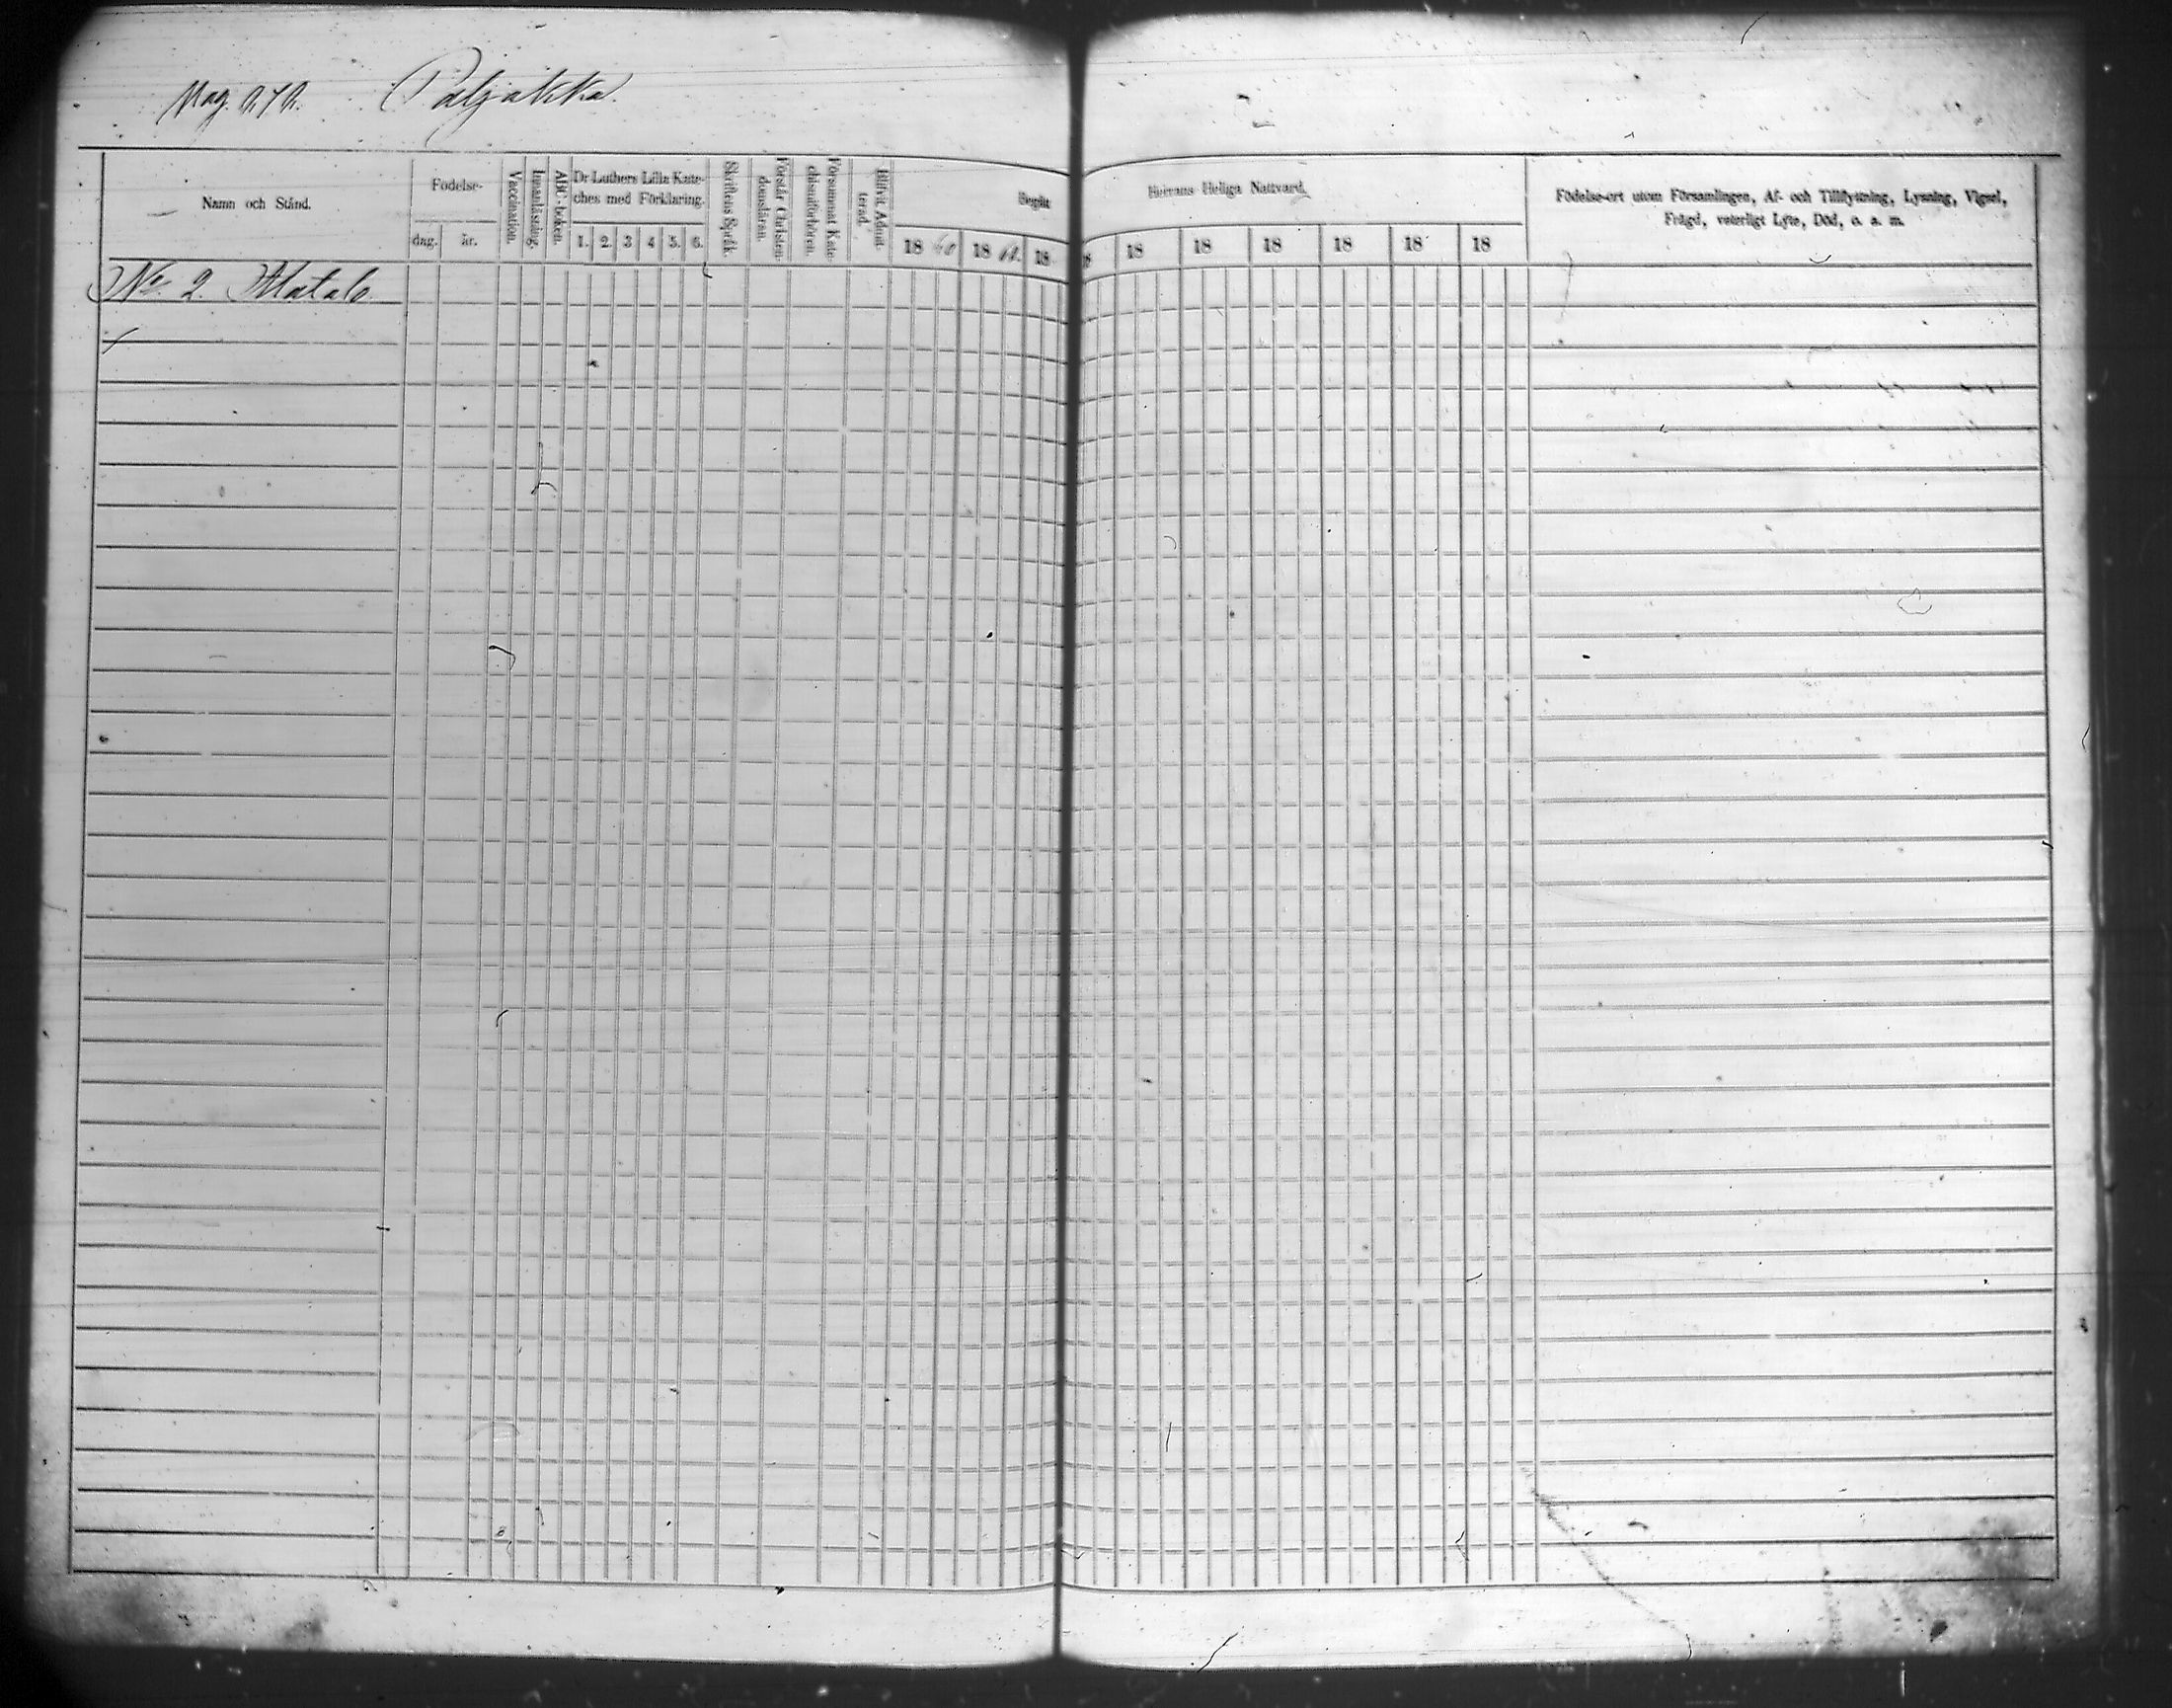 Pag. Paljakka.
Namn och Stånd.
Födelse-
dag.
år.
Vaccination.
Innanläsning.
ABC-boken.
Dr Luthers Lilla Kate-
ches med Förklaring.
1. 2. 3 4 5. 6.
Skriftens Språk.
Förstår Christen-
domsläran.
Försummat Kate-
chismiförhören.
Blifvit Admit-
terad.
Begått
Herrans Heliga Nattvard.
18 60 18 61. 18
18 18 18 18 18 18
Födelse-ort utom Församlingen, Af- och Tillflyttning, Lysning, Vigsel,
Frägd, veterligt Lyte, Död, o. a. m.
No. 2. Matala